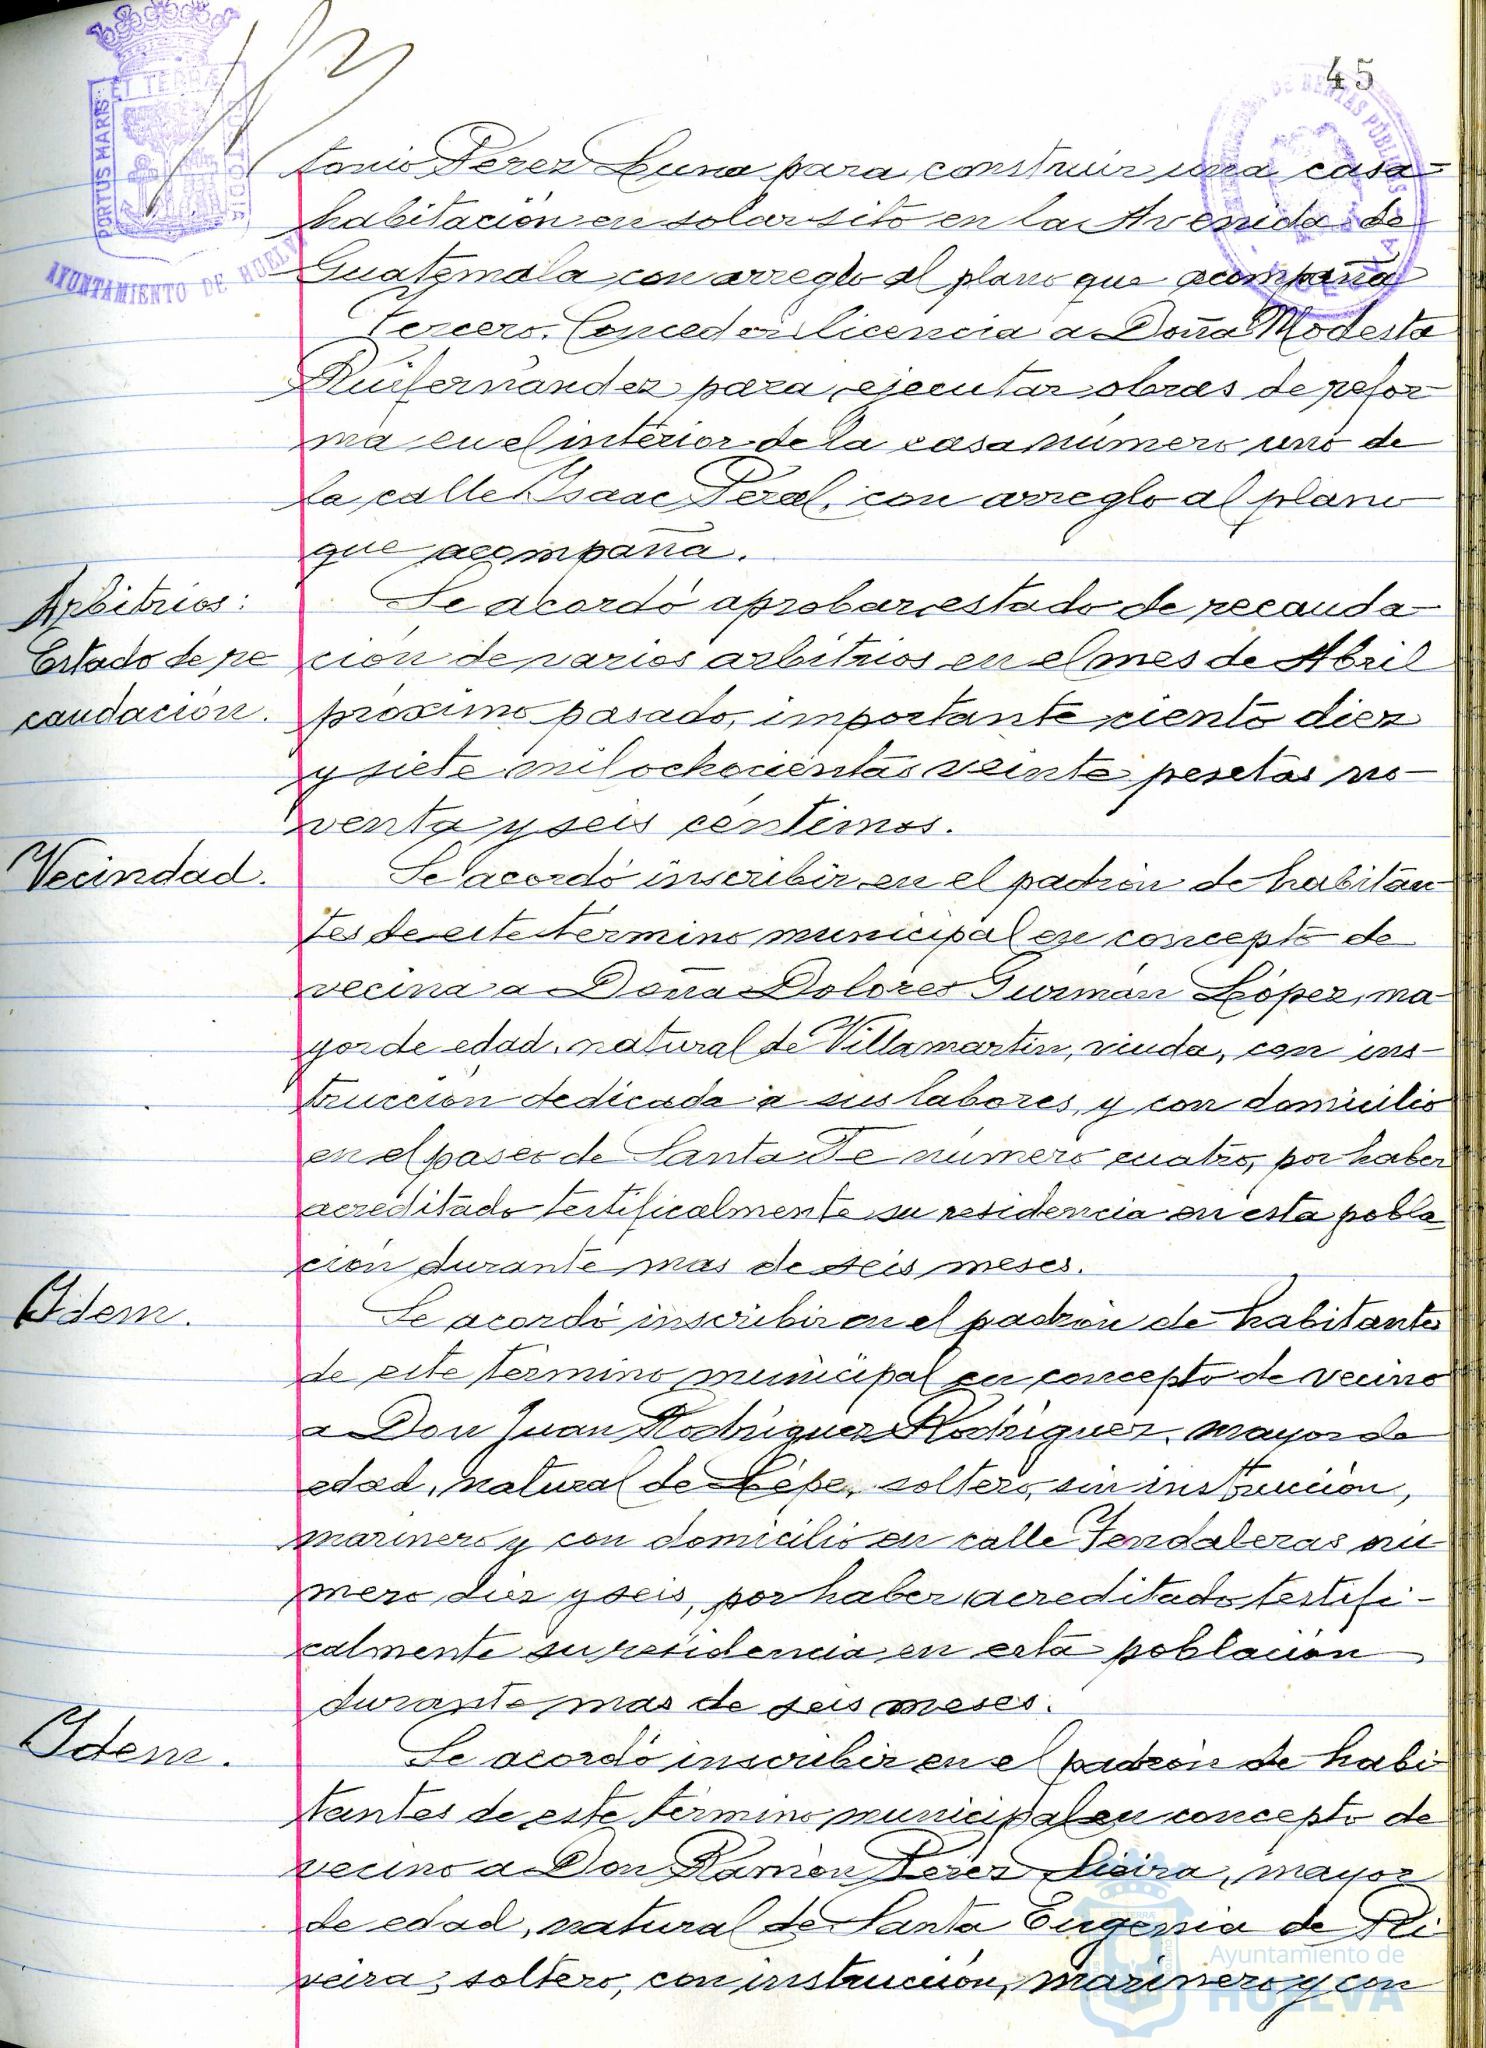 45
ET TERRÆ
PORTUS MARIS
CUSTODIA
AYUNTAMIENTO DE HUELVA
DE RENTAS PÚBLICAS
tonio Perez Luna para construir una casa-
habitación en solar sito en la Avenida de
Guatemala con arreglo al plano que acompaña
Tercero. Conceder licencia a Doña Modesta
Ruifernandez para ejecutar obras de refor-
ma en el interior de la casa número uno de
la calle Isaac Peral, con arreglo al plano
que acompaña.
Arbitrios:
Estado de re
caudación.
Se acordó aprobar estado de recauda-
ción de varios arbitrios en el mes de Abril
próximo pasado, importante ciento diez
y siete mil ochocientas veinte pesetas no-
venta y seis centimos.
Vecindad.
Se acordó inscribir en el padrón de habitan-
tes de este termino municipal en concepto de
vecina a Doña Dolores Guzmán López, ma-
yor de edad, natural de Villamartin, viuda, con ins-
trucción dedicada a sus labores, y con domicilio
en el paseo de Santa Fe número cuatro, por haber
acreditado testificalmente su residencia en esta pobla
ción durante mas de seis meses.
Idem.
Se acordó inscribir en el padrón de habitantes
de este término municipal en concepto de vecino
a Don Juan Rodríguez Rodríguez, mayor de
edad, natural de Lepe, soltero, sin instrucción,
marinero y con domicilio en calle Tendaleras nú-
mero diez y seis, por haber acreditado testifi-
calmente su residencia en esta población
durante mas de seis meses.
Idem.
Se acordó inscribir en el padrón de habi-
tantes de este término municipal en concepto de
vecino a Don Ramón Perez Sieira, mayor
de edad, natural de Santa Eugenia de Ri-
veira, soltero, con instrucción, marinero y con
Ayuntamiento de
HUELVA